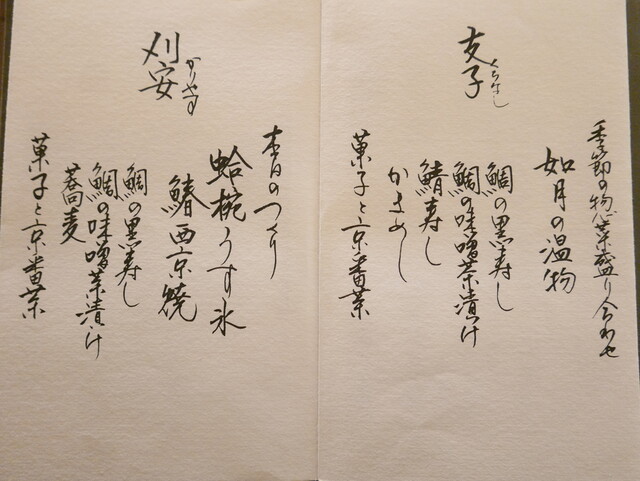 支子
くちなし
季節の物 葉盛り合わせ
如月の温物
鯛の黒寿し
鯛の味噌茶漬け
鯖寿し
かまめし
菓子と京番茶
刈安
かりやす
本日のつくり
蛤椀うす氷
鰆西京焼
鯛の黒寿し
鯛の味噌茶漬け
蕎麦
菓子と京番茶